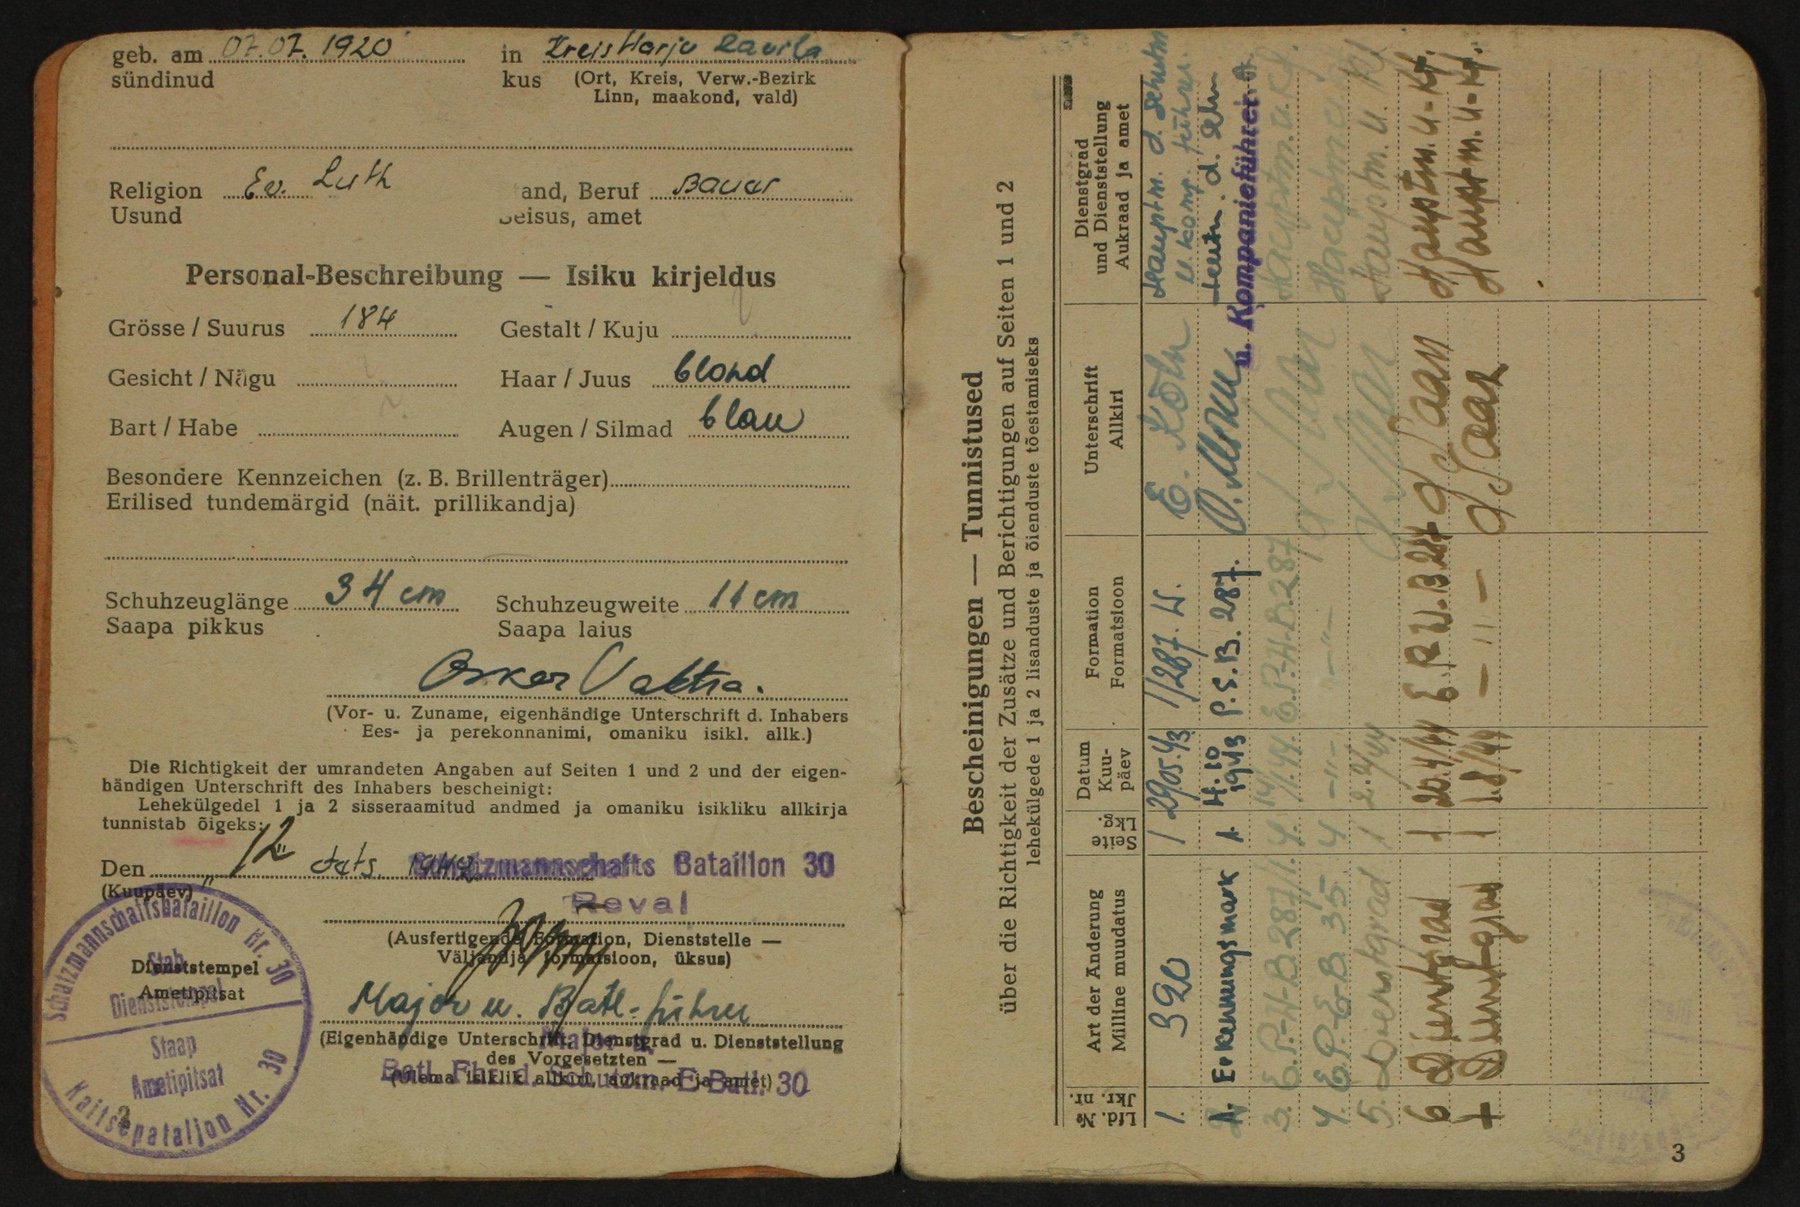 geb. am 07.07.1920 in Kreis Harju
sündinud kus (Ort, Kreis, Verw.-Bezirk
Linn, maakond, vald)
Religion Ev. Luth and, Beruf Bauer
Usund seisus, amet
Personal-Beschreibung — Isiku kirjeldus
Grösse / Suurus 184 Gestalt / Kuju
Gesicht / Nägu Haar / Juus blond
Bart / Habe Augen / Silmad blau
Besondere Kennzeichen (z. B. Brillenträger)
Erilised tundemärgid (näit. prillikandja)
Schuhzeuglänge 34 cm Schuhzeugweite 11 cm
Saapa pikkus Saapa laius
Oskar
(Vor- u. Zuname, eigenhändige Unterschrift d. Inhabers
Ees- ja perekonnanimi, omaniku isikl. allk.)
Die Richtigkeit der umrandeten Angaben auf Seiten 1 und 2 und der eigen-
händigen Unterschrift des Inhabers bescheinigt:
Lehekülgedel 1 ja 2 sisseraamitud andmed ja omaniku isikliku allkirja
tunnistab õigeks:
Den "12"
(Kuupäev)
Schutzmannschafts Bataillon 30
Reval
(Ausfertigende Formation, Dienststelle —
Väljaandja formatsioon, üksus)
Dienststempel
Ametipitsat
Schutzmannschaftsbataillon Nr. 30
Stab
Dienststempel
Staap
Ametipitsat
Kaitsepataljon Nr. 30
Major u. Batl-führer
(Eigenhändige Unterschrift, Dienstgrad u. Dienststellung
des Vorgesetzten —
Ülema isiklik allkiri, aukraad ja amet)
Major u.
Batl. Fhr. d. Schutzm. E-Batl. 30
2
Bescheinigungen — Tunnistused
über die Richtigkeit der Zusätze und Berichtigungen auf Seiten 1 und 2
lehekülgede 1 ja 2 lisanduste ja õienduste tõestamiseks
Lfd. № Jkr. nr. | Art der Änderung Milline muudatus | Seite Lkg. | Datum Kuu- päev | Formation Formatsioon | Unterschrift Allkiri | Dienstgrad und Dienststellung Aukraad ja amet
1. 390 1 29.05.43 1/287. W. E. Kõln Hauptm. d. Schutzm u. Komp. führer.
Erkennungsmark 1. 4.10 1943 P.S.B. 287.
u. Kompanieführer
3. 287 4. E.P.H.B. 287 Hauptm. u. Kf.
4. E.P.E.B. 35 4 — " — — " — Hauptm. u. Kf
5. Dienstgrad 1 Hauptm. u. Kf
6 Dienstgrad 1 20.4/44 Hauptm. u. Kf.
Dienstgrad 1 1.8/44 — " — Hauptm. u. Kf.
3